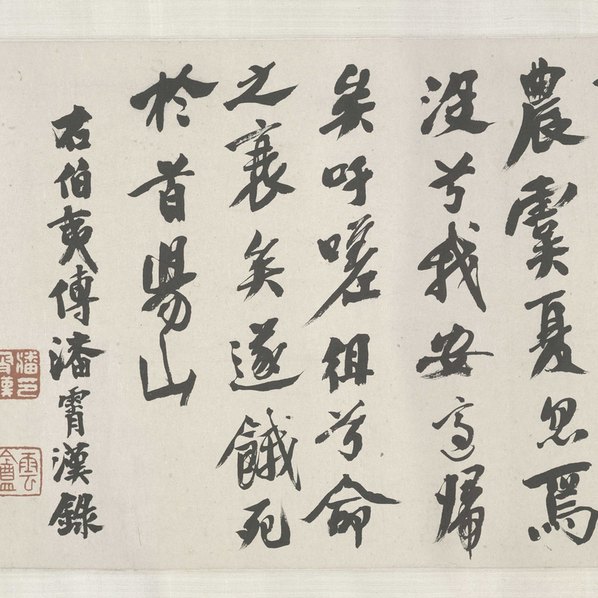 農虞夏忽焉
沒兮我安適歸
矣吁嗟徂兮命
之衰矣遂餓死
於首陽山
右伯夷傳潘霄漢錄
潘印霄漢